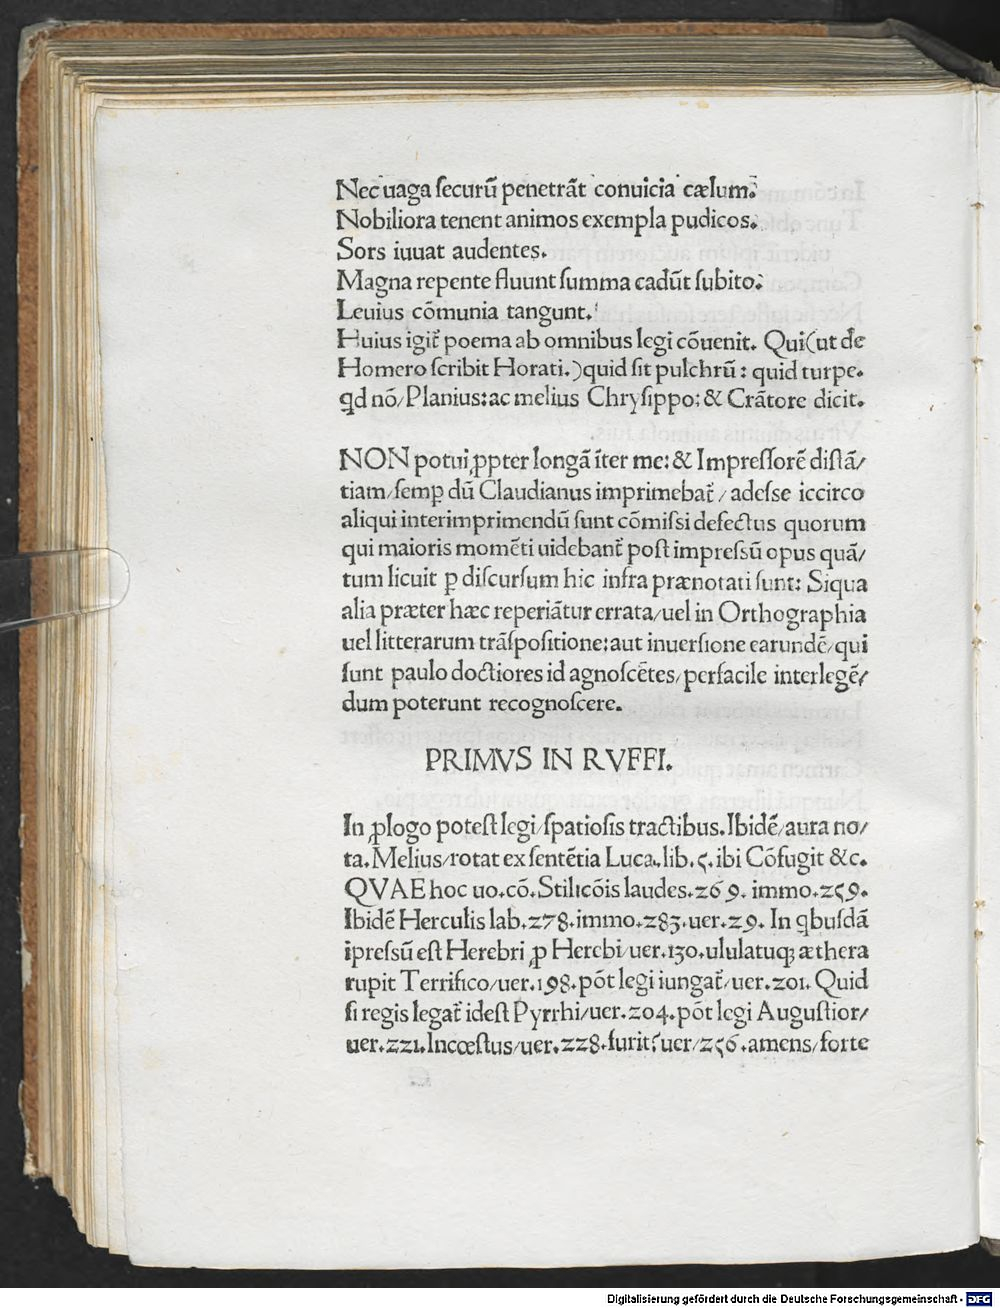 Nec uaga securũ penetrãt conuicia cælum.
Nobiliora tenent animos exempla pudicos.
Sors iuuat audentes.
Magna repente fluunt summa cadũt subito.
Leuius cõmunia tangunt.
Huius igit̃ poema ab omnibus legi cõuenit. Qui(ut de
Homero scribit Horati.)quid sit pulchrũ: quid turpe.
qd nõ/Planius:ac melius Chrysippo:& Crãtore dicit.
NON potui ꝓpter longã iter me:& Impressorẽ distã/
tiam/semꝑ dũ Claudianus imprimebat̃/adesse iccirco
aliqui interimprimendũ sunt cõmissi defectus quorum
qui maioris momẽti uidebant̃ post impressũ opus quã/
tum licuit ꝑ discursum hic infra prænotati sunt: Siqua
alia præter hæc reperiãtur errata/uel in Orthographia
uel litterarum trãspositione:aut inuersione earundẽ/qui
sunt paulo doctiores id agnoscẽtes/perfacile interlegẽ/
dum poterunt recognoscere.
PRIMVS IN RVFFI.
In ꝓlogo potest legi/spatiosis tractibus.Ibidẽ/aura no/
ta.Melius/rotat ex sentẽtia Luca.lib.5.ibi Cõfugit &c.
QVAE hoc uo.cõ.Stilicõis laudes.269. immo.259.
Ibidẽ Herculis lab.278.immo.283.uer.29. In qbusdã
ipressũ est Herebri ꝓ Herebi/uer.130.ululatuq; æthera
rupit Terrifico/uer.198.põt legi iungat̃/uer.201. Quid
si regis legat̃ idest Pyrrhi/uer.204.põt legi Augustior/
uer.221.Incœstus/uer.228.furit?uer/256.amens/forte
Digitalisierung gefördert durch die Deutsche Forschungsgemeinschaft - DFG